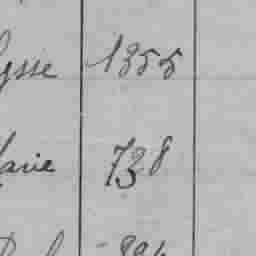 ysse 1355
arie 738